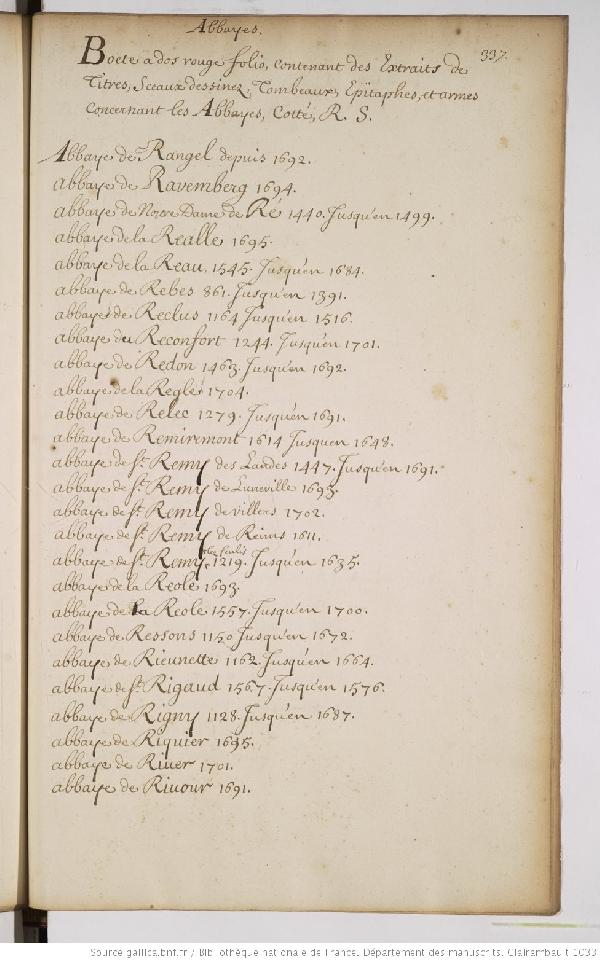 Abbayes.
337.
Boete a dos rouge folio, contenant des Extraits de
Titres, Sceaux dessinez, Tombeaux, Epitaphes, et armes
concernant les Abbayes, Cotté, R. S.
Abbaye de Rangel depuis 1692.
abbaye de Ravemberg 1694.
abbaye de Notre Dame de Ré 1440. Jusqu'en 1499.
abbaye de la Realle 1695.
abbaye de la Reau, 1545. Jusqu'en 1684.
abbaye de Rebes 861. Jusqu'en 1391.
abbaye de Reclus 1164 Jusqu'en 1516.
abbaye du Reconfort 1244. Jusqu'en 1701.
abbaye de Redon 1463. Jusqu'en 1692.
abbaye de la Regle 1704.
abbaye de Relec 1279. Jusqu'en 1691.
abbaye de Remiremont 1614 Jusquen 1648.
abbaye de St. Remy des Landes 1447. Jusqu'en 1691.
abbaye de St. Remy de Luneville 1693.
abbaye de St. Remy de villers 1702.
abbaye de St. Remy de Reims 1611.
abbaye de St. Remy 1219. Jusqu'en 1635.
abbaye de la Reole 1693.
abbaye de la Reole 1557. Jusqu'en 1700.
abbaye de Ressons 1150 Jusqu'en 1672.
abbaye de Rieunette 1162. Jusqu'en 1664.
abbaye de St. Rigaud 1567. Jusqu'en 1576.
abbaye de Rigny 1128. Jusqu'en 1687.
abbaye de Riquier 1695.
abbaye de Riuer 1701.
abbaye de Riuour 1691.
Source gallica.bnf.fr / Bibliothèque nationale de France. Département des manuscrits. Clairambault 1033